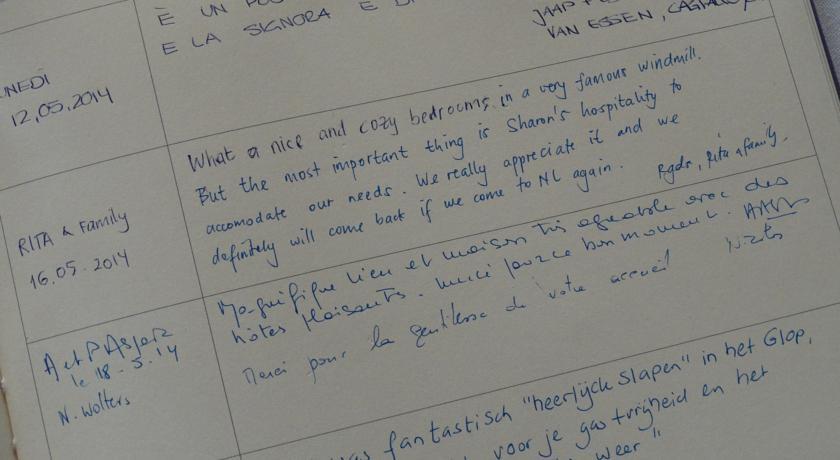 È UN
E LA SIGNORA E
JAAP
VAN ESSEN,
NEDI
12.05.2014
What a nice and cozy bedrooms, in a very famous windmill.
But the most important thing is Sharon's hospitality to
accomodate our needs. We really appreciate it and we
definitely will come back if we come to NL again.
Rgds, Rita & family.
RITA & Family
16.05.2014
Magnifique lieu et maison très agréable avec des
hôtes plaisants. Merci pour ce bon moment.
Merci pour la gentillesse de votre accueil
A et P
le 18-5-14
N. Wolters
fantastisch "heerlijck slapen" in het Glop,
voor je gastvrijheid en het
weer"